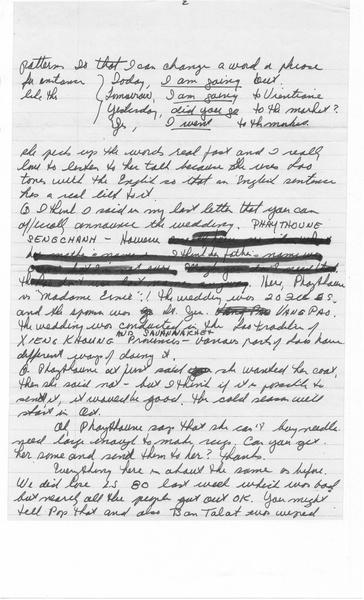 2
pattern so that I can change a word a phrase
for instance Today, I am going out.
like this Tomorrow, I am going to Vientiane
Yesterday, did you go to the market?
Yes, I went to the market.
She picks up the words real fast and I really
love to listen to her talk because she uses Lao
tones with the English so that an English sentence
has a real lilt to it.
I think I said in my last letter that you can
officially announce the wedding. PHAYTHOUNE
SENGCHANH - However
Here, Phaythoune
is "Madame Ernie"! The wedding was
and the sponsor was Lt. Gen. VANG PAO.
The wedding was conducted in the Lao tradition of
XIENG KHOUANG AND SAVANNAKHET Provinces - various parts of Laos have
different ways of doing it.
Phaythoune at first said she wanted her coat,
then she said not - but I think if it's possible to
send it, it would be good. The cold season will
start in Oct.
Oh, Phaythoune says that she can't buy needles
need large enough to make rugs. Can you get
her some and send them to her? Thanks.
Everything here is about the same as before.
We did lose LS 80 last week which was bad
but nearly all the people got out OK. You might
tell Pop that and also Ban Talat was wiped